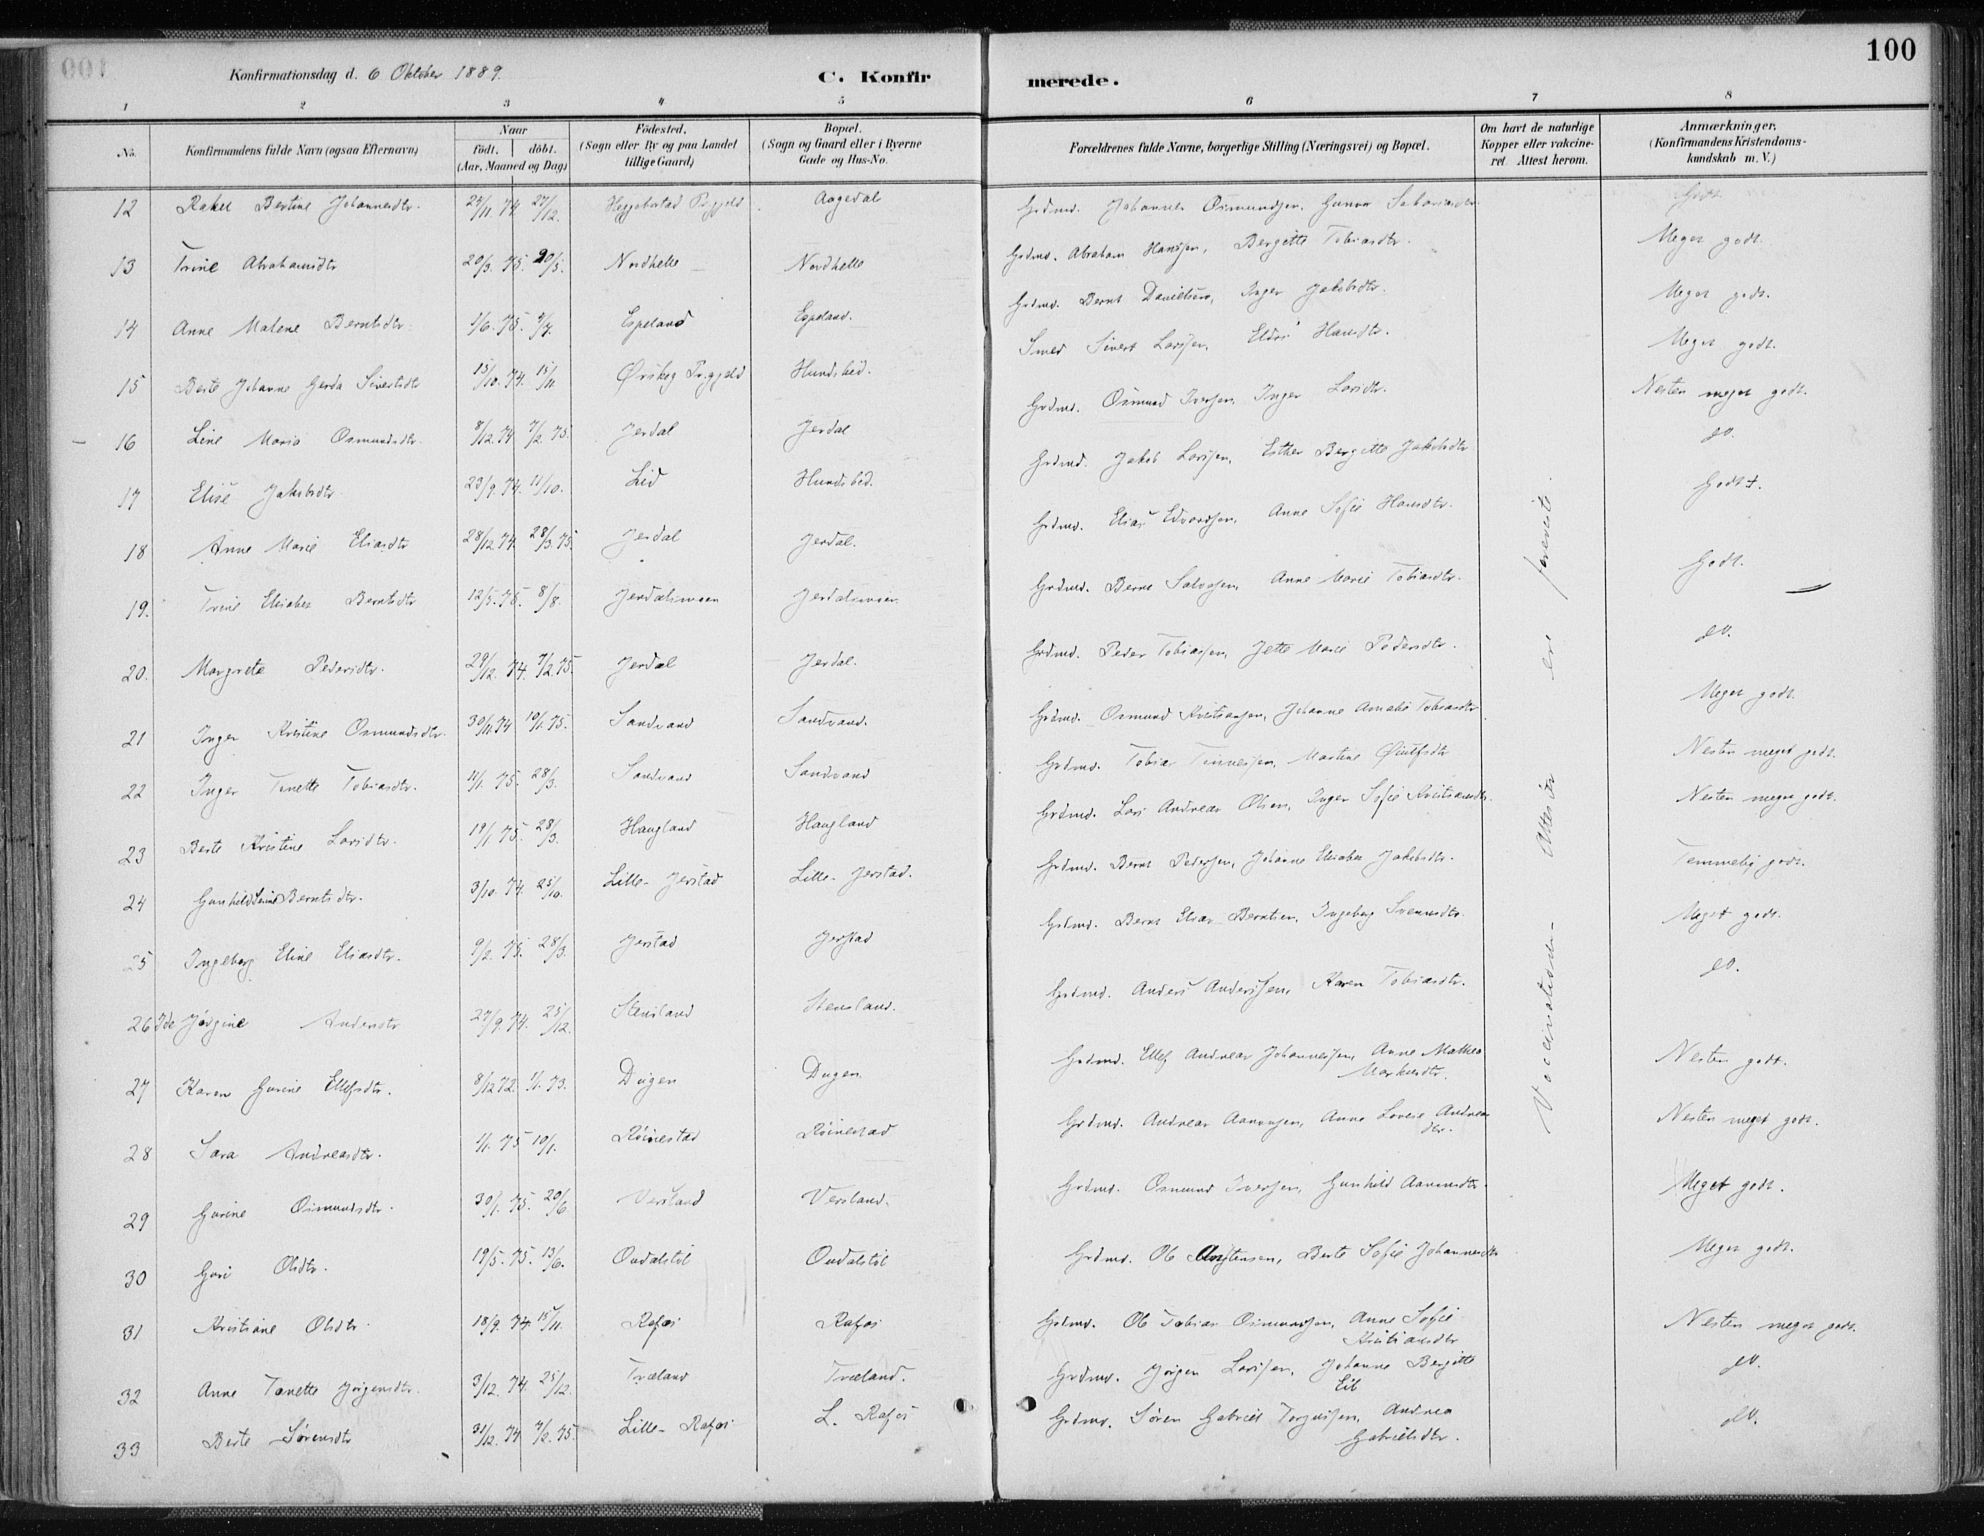 100
Konfirmationsdag d. 6 Oktober 1889.
C. Konfirmerede.
1 2 3 4 5 6 7 8
No.
Konfirmandens fulde Navn (ogsaa Efternavn)
Naar
födt. döbt.
(Aar, Maaned og Dag)
Födested.
(Sogn eller By og paa Landet
tillige Gaard)
Bopæl.
(Sogn og Gaard eller i Byerne
Gade og Hus-No.
Forældrenes fulde Navne, borgerlige Stilling (Næringsvei) og Bopæl.
Om havt de naturlige
Kopper eller vakcine-
ret. Attest herom.
Anmærkninger.
(Konfirmandens Kristendoms-
kundskab m. V.)
12 Rakel Bertine Johannesdtr. 24/11. 74. 27/12. Heggebostad Prgjeld Aagedal Grdmd. Johannes Osmundsen, Gunvor Sakariasdtr. Godt
13 Trine Abrahamsdtr 20/3. 75. 20/5. Nordhelle Nordhelle Grdmd. Abraham Hansen, Bergitte Tobiasdtr. Meget godt.
14 Anne Malene Berntsdtr. 1/6. 75. 4/7. Espeland Espeland. Grdmd. Bernt Danielsen, Inger Jakobsdtr. Meget godt.
15 Berte Johanne Gerda Sivertsdtr 15/10. 74. 15/11 Ørskog Prgjeld Hundsbed. Smed Sivert Larsen, Eldri Hansdtr. Meget godt.
16 Line Maria Osmundsdtr. 8/12. 74 7/2. 75. Jerdal Jerdal Grdmd. Osmund Iversen, Inger Larsdtr. Nesten meget godt.
17 Elise Jakobsdtr. 23/9. 74. 11/10. Lid Hundsbed. Grdmd. Jakob Larsen, Esther Bergitte Jakobsdtr do.
18 Anne Marie Eliasdtr 28/12. 74. 28/3. 75. Jerdal Jerdal. Grdmd. Elias Edvardsen, Anne Sofie Hansdtr. Godt.
19. Trine Elisabet Berntsdtr 12/5. 75. 8/8. Jerdalsmoen Jerdalsmoen Grdmd. Bernt Salvesen, Anne Marie Tobiasdtr. Godt.
20. Margrete Pedersdtr. 29/12. 74. 7/2. 75. Jerdal Jerdal. Grdmd. Peder Tobiassen, Jette Marie Pedersdtr. do.
21 Inger Kristine Osmundsdtr. 30/11. 74 10/1. 75. Sandvand Sandvand. Grdmd. Osmund Kristiansen, Johanne Amalie Tobiasdtr. Meget godt.
22 Inger Tonette Tobiasdtr. 11/1. 75. 28/3. Sandvand Sandvand Grdmd. Tobias Tønnessen, Martine Ouılfsdtr Nesten meget godt.
23 Berte Kristine Larsdtr. 19/1 75. 28/3. Haugland Haugland Grdmd. Lars Andreas Olsen, Inger Sofie Kristiansdtr. Nesten meget godt.
24 Gunhild Berntsdtr. 3/10. 74. 25/10. Lille-Jerstad Lille-Jerstad. Grdmd. Bernt Pedersen, Johanne Elisabet Jakobsdtr. Temmelig godt.
25 Ingeborg Eline Eliasdtr. 9/2. 75. 28/3. Jerstad Jerstad Grdmd. Bernt Elias Berntsen, Ingeborg Svennsdtr. Meget godt.
26 Ide Jørgine Andersdtr 27/9. 74. 25/12. Stensland Stensland. Grdmd. Anders Andersen, Karen Tobiasdtr. do.
27 Karen Gurine Ellefsdtr. 8/12 72. 1/1. 73. Dugen Dugen Grdmd. Ellef Andreas Johannessen, Anne Mathea
Markusdtr. Nesten godt.
28 Sara Andreasdtr. 1/1. 75 10/1. Röinestad Röinestad Grdmd. Andreas Aanensen, Anne Lovise Andreas
dtr. Nesten meget godt.
29 Gurine Osmundsdtr. 30/1. 75. 20/6 Versland Versland. Grdmd. Osmund Iversen, Gunhild Aanensdtr. Meget godt.
30 Guri Olsdtr. 19/5. 75. 13/6. Ondalstöl Ondalstöl Grdmd. Ole Berte Sofie Johannesdtr Meget godt.
31 Kristiane Olsdtr. 18/9. 74. 15/11. Rafos Rafos Grdmd. Ole Tobias Osmundsen, Anne Sofie
Kristiansdtr Nesten meget godt.
32 Anne Tonette Jørgensdtr. 3/12. 74. 25/12. Træland Træland. Grdmd. Jørgen Larsen, Johanne Bergitte
Eil do.
33 Berte Sørensdtr 31/12. 74 7/2. 75. Lille-Rafos L. Rafos Grdmd. Søren Gabriel Torgersen, Andrea
Gabrielsdtr. do.
Vaccinationsattester ere foreviste.